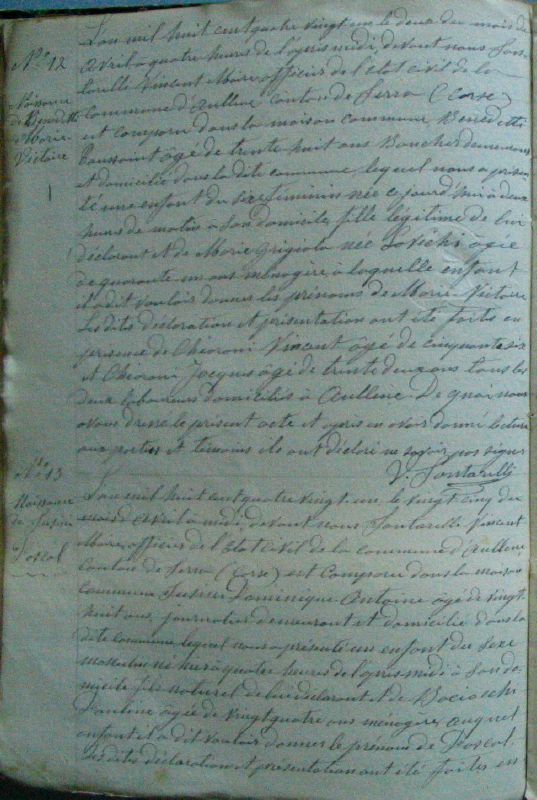 N° 12
Naissance
de Benedetti
Marie
Victoire
L'an mil huit cent quatre vingt un le deux du mois de
avril a quatre heures de l'après midi, devant nous Santa-
relli Vincent Maire officier de l'état civil de la
commune d'Aullene canton de Serra (Corse)
est comparu dans la maison commune Benedetti
Toussaint âgé de trente huit ans Boucher demeurant
et domicilié dans la dite commune lequel nous a présen
té un enfant du sexe féminin née ce jourd'hui à deux
heures de matin à son domicile, fille légitime de lui
déclarant et de Marie née âgée
de quarante un ans ménagère, à laquelle enfant
il a dit vouloir donner les prénoms de Marie Victoire
Les dites déclaration et présentation ont été faites en
présence de Chiaroni Vincent âgé de cinquante six
et Chiaroni Jacques âgé de trente deux ans tous les
deux laboureurs domiciliés à Aullene De quoi nous
avons dressé le présent acte et après en avoir donné lecture
aux parties et témoins ils ont déclaré ne savoir pas signer
V. Santarelli
N° 13
Naissance
de
Pascal
L'an mil huit cent quatre vingt un le vingt cinq du
mois d'avril a midi, devant nous Santarelli Vincent
Maire, officier de l'état civil de la commune d'Aullene
canton de Serra (Corse) est comparu dans la maison
commune Dominique Antoine âgé de vingt
huit ans, journalier demeurant et domicilié dans la
dite commune lequel nous a présenté un enfant du sexe
masculin né hier à quatre heures de l'après midi à son do
micile fils naturel de lui déclarant et de
Pauline âgée de vingt quatre ans ménagère, auquel
enfant il a dit vouloir donner le prénom de Pascal.
Les dites déclaration et présentation ont été faites en